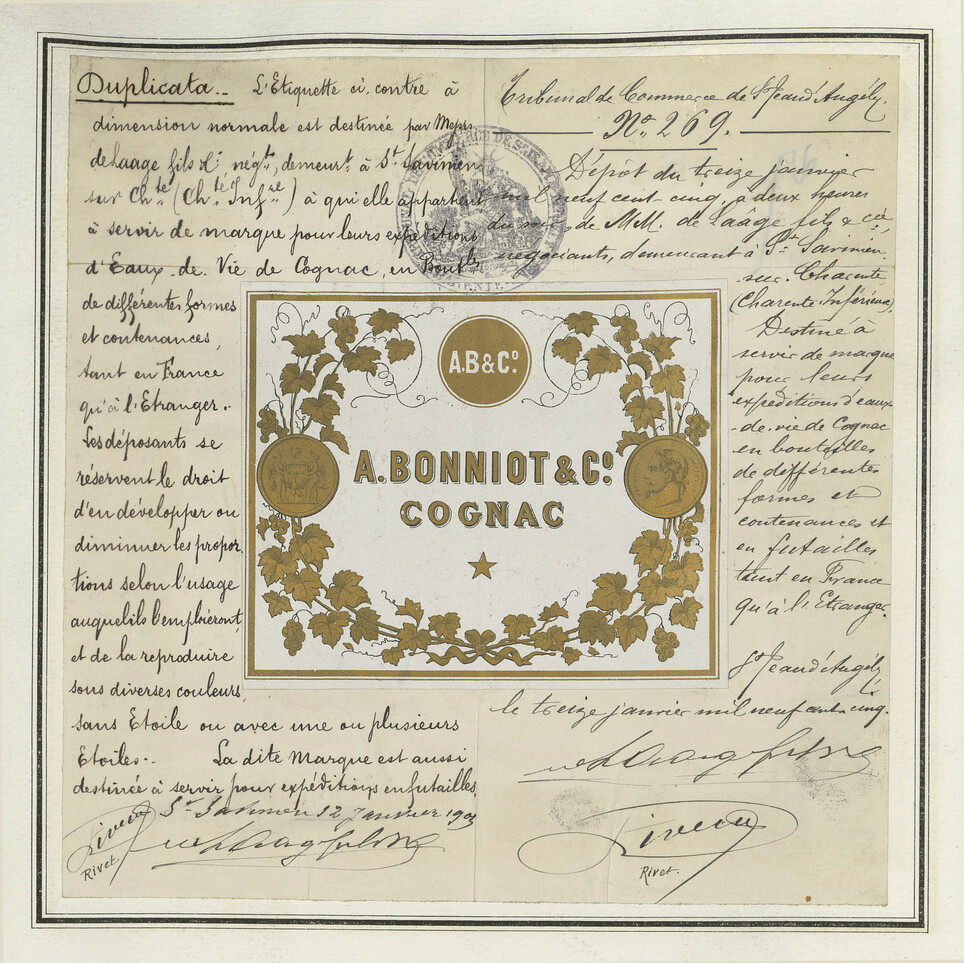 Duplicata.- L'Etiquette ci-contre à
dimension normale est destinée par Mess.
de Laage fils & Cie, négts, demeurt. à St. Savinien
sur Chte. (Chte. Infre.) à qui elle appartient
à servir de marque pour leurs expéditions
d'Eaux-de-Vie de Cognac, en Boutlles
de différentes formes
et contenances,
tant en France
qu'à l'Etranger.-
Les déposants se
réservent le droit
d'en développer ou
diminuer les propor-
tions selon l'usage
auquel ils l'emploieront,
et de la reproduire
sous diverses couleurs,
sans Etoile ou avec une ou plusieurs
Etoiles.- La dite Marque est aussi
destinée à servir pour expéditions en futailles,
St. Savinien 12 Janvier 1905
Rivet.
A.B & Co.
A. BONNIOT & Co.
COGNAC
Tribunal de Commerce de St Jean d'Angély.
No. 269.
Dépôt du treize janvier
mil neuf cent cinq, à deux heures
du soir de M.M. de Laâge fils & cie,
négociants, demeurant à St. Savinien
sur Charente
(Charente Inférieure),
Destiné à
servir de marque
pour leurs
expéditions d'eaux-
-de-vie de Cognac
en bouteilles
de différentes
formes et
contenances et
en futailles
tant en France
qu'à l'Etranger.
St Jean d'Angély
le treize janvier mil neuf cent cinq.
Rivet.